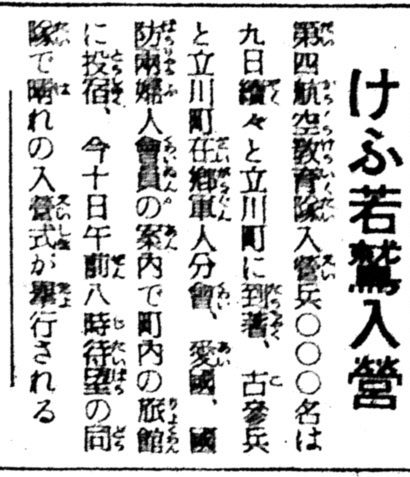 けふ若鷲入營
第四航空敎育隊入營兵〇〇〇名は
九日續々と立川町に到著、古參兵
と立川町在鄕軍人分會、愛國、國
防兩婦人會員の案內で町內の旅館
に投宿、今十日午前八時待望の同
隊で晴れの入營式が擧行される